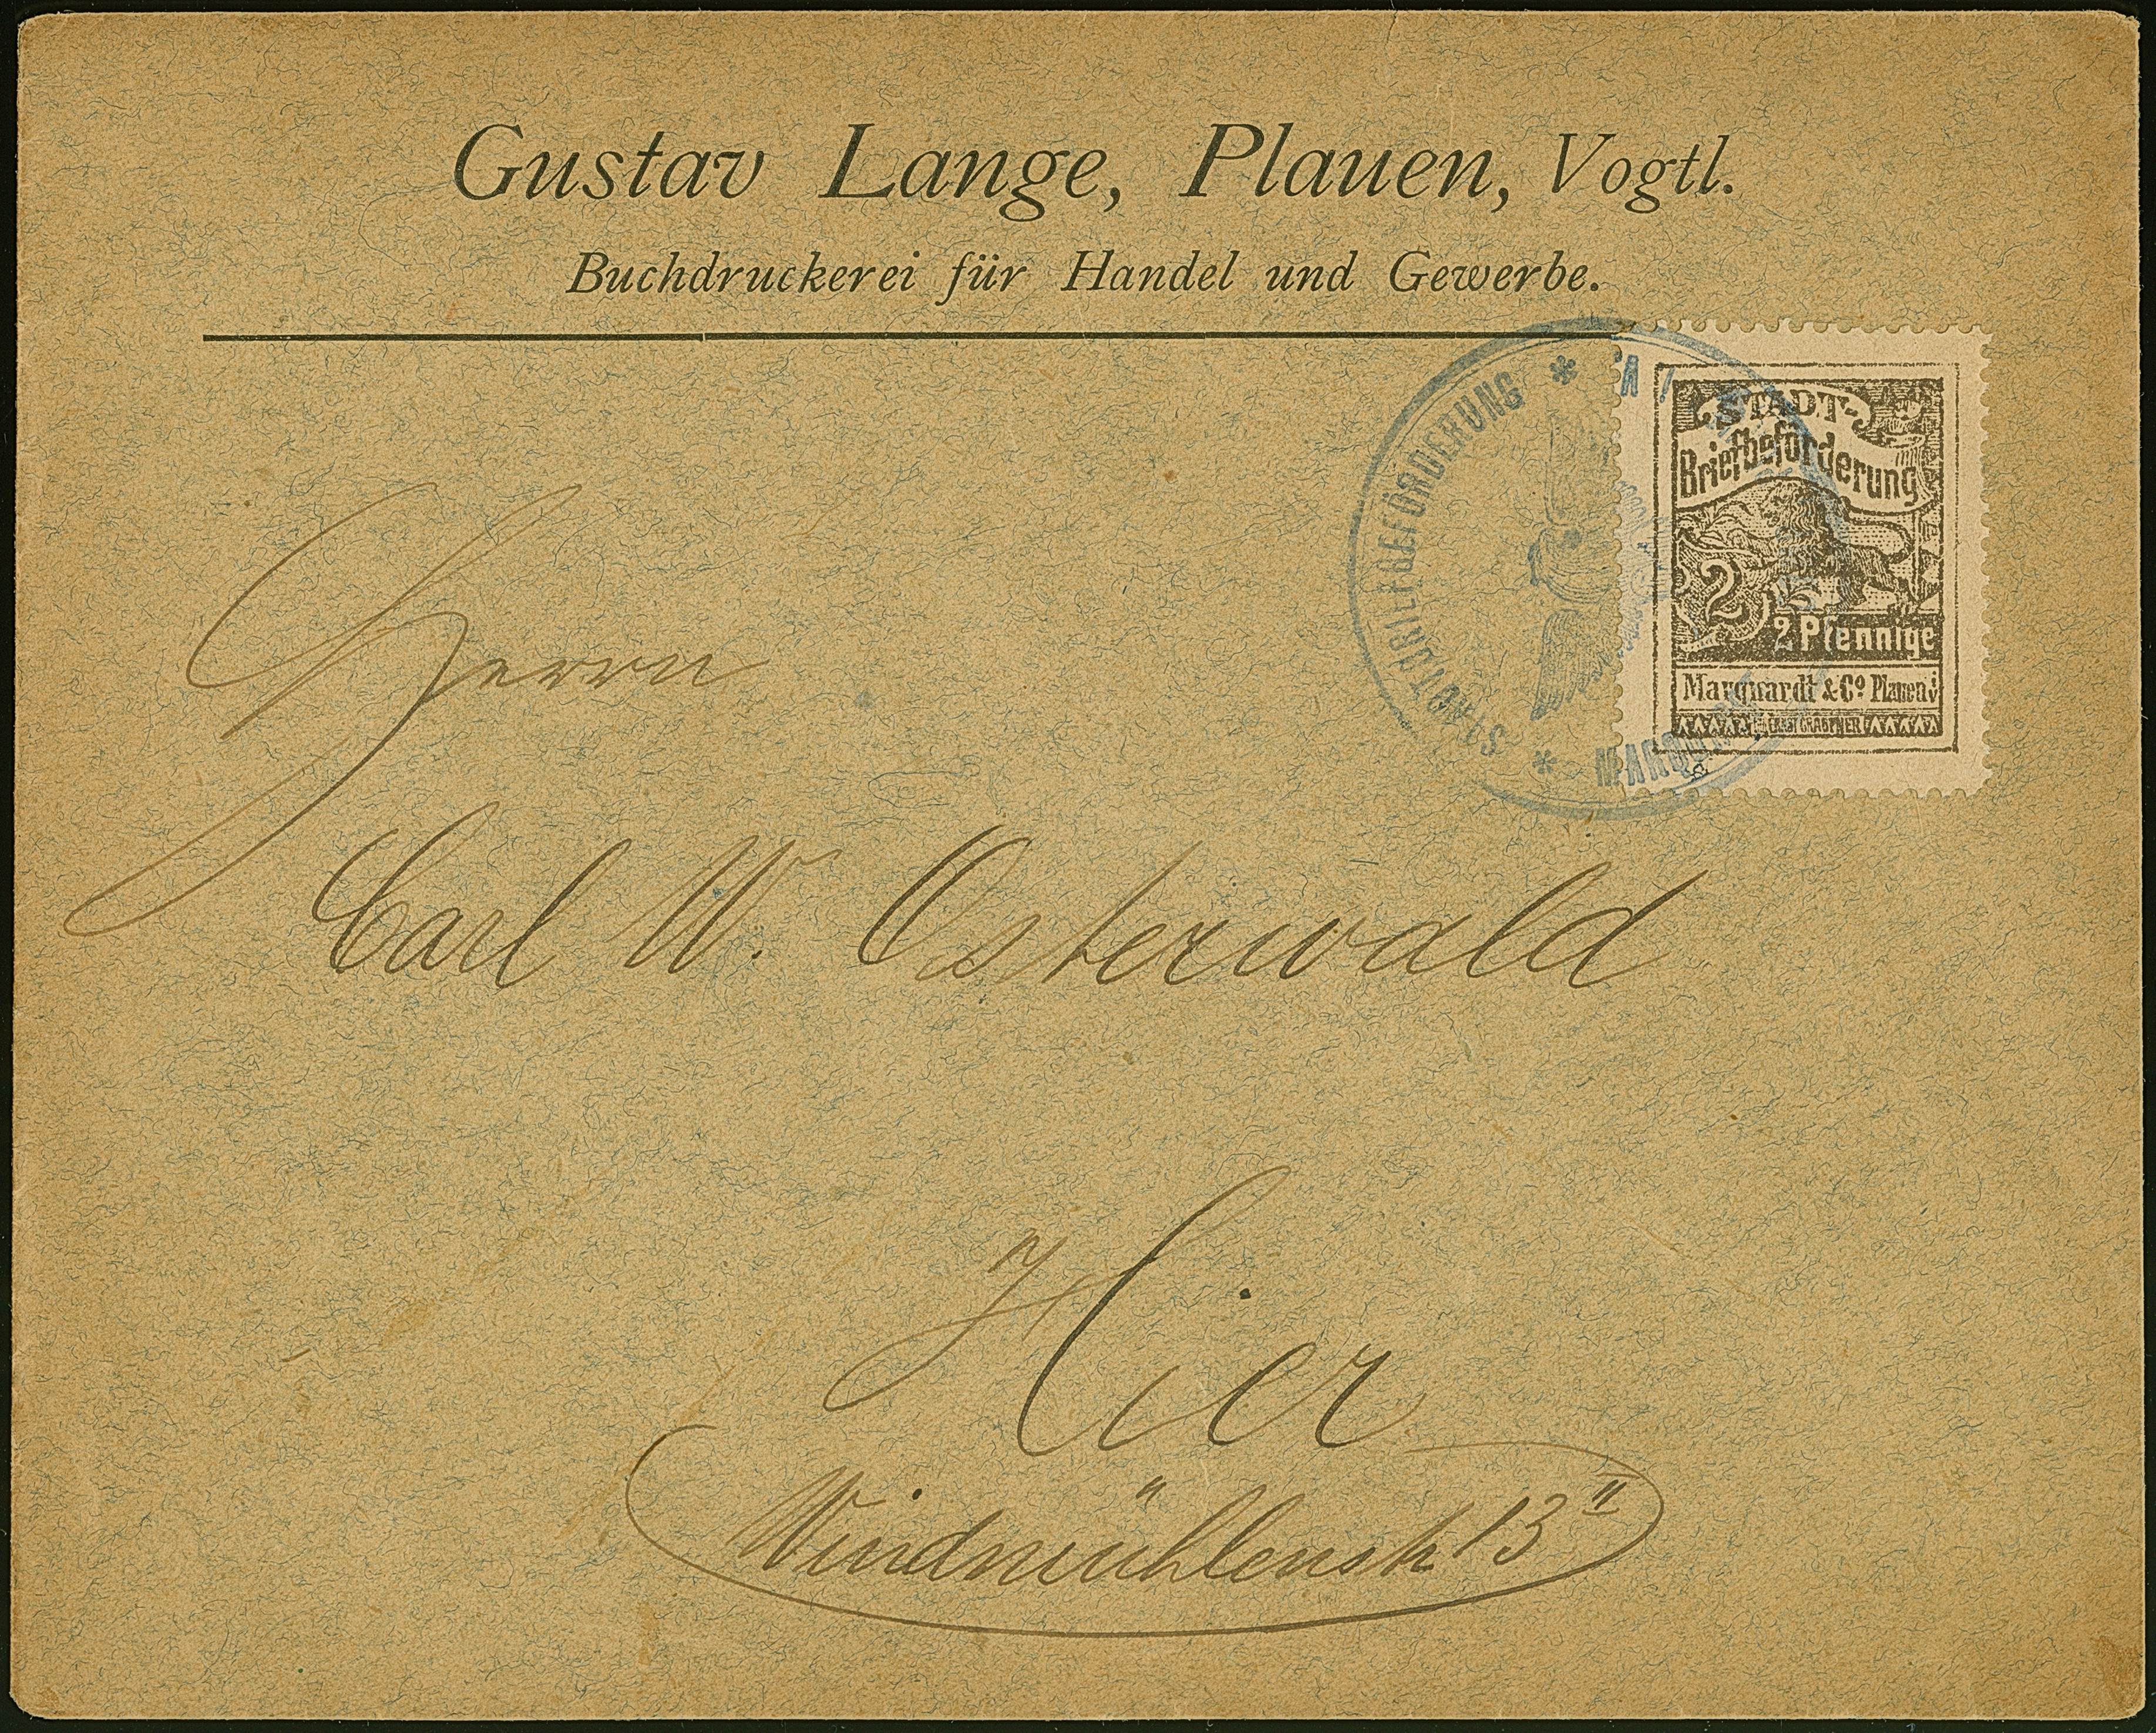 Gustav Lange, Plauen, Vogtl.
Buchdruckerei für Handel und Gewerbe.
STADTBRIEFBEFÖRDERUNG * *
STADT-
Briefbeförderung
2
2 Pfennige
Marquardt & Co Plauen i/V
Herrn
Carl W. Osterwald
Hier
Windmühlenstr 13 II